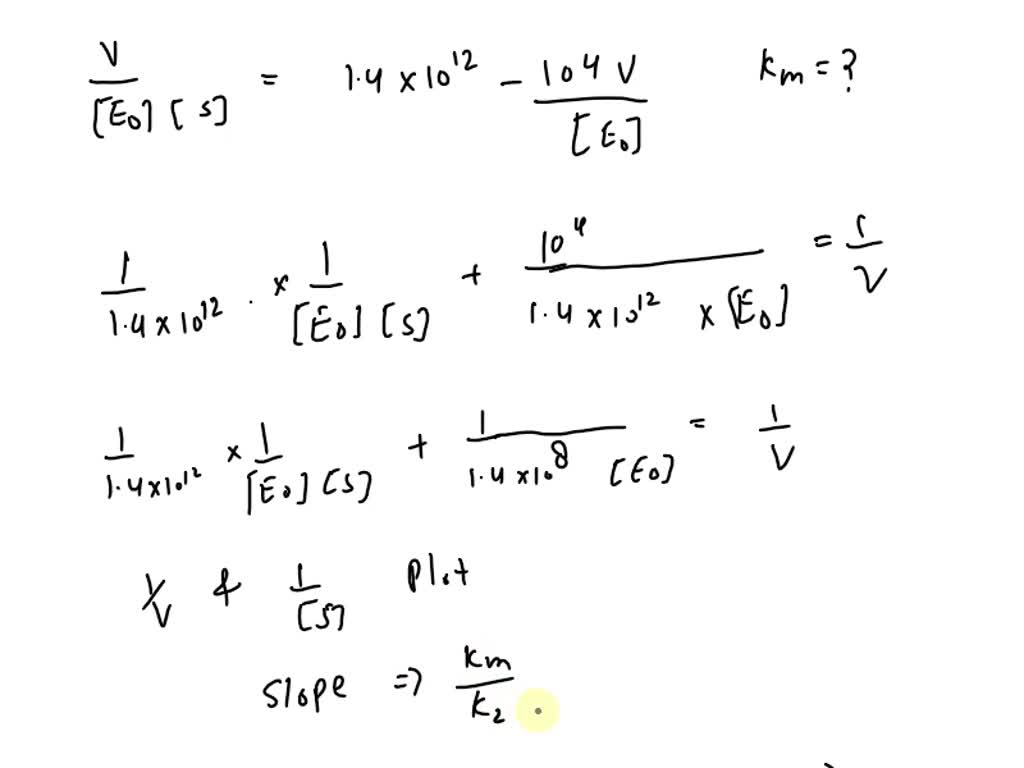 V / [E₀] [S] = 1.4 × 10¹² − 104 V / [E₀] Km = ?
1 / 1.4 × 10¹² . × 1 / [E₀] [S] + 10⁴ / 1.4 × 10¹² × [E₀] = 1 / V
1 / 1.4 × 10¹² × 1 / [E₀] [S] + 1 / 1.4 × 10⁸ [E₀] = 1 / V
1/V & 1 / [S] Plot
Slope ⇒ Km / K₂